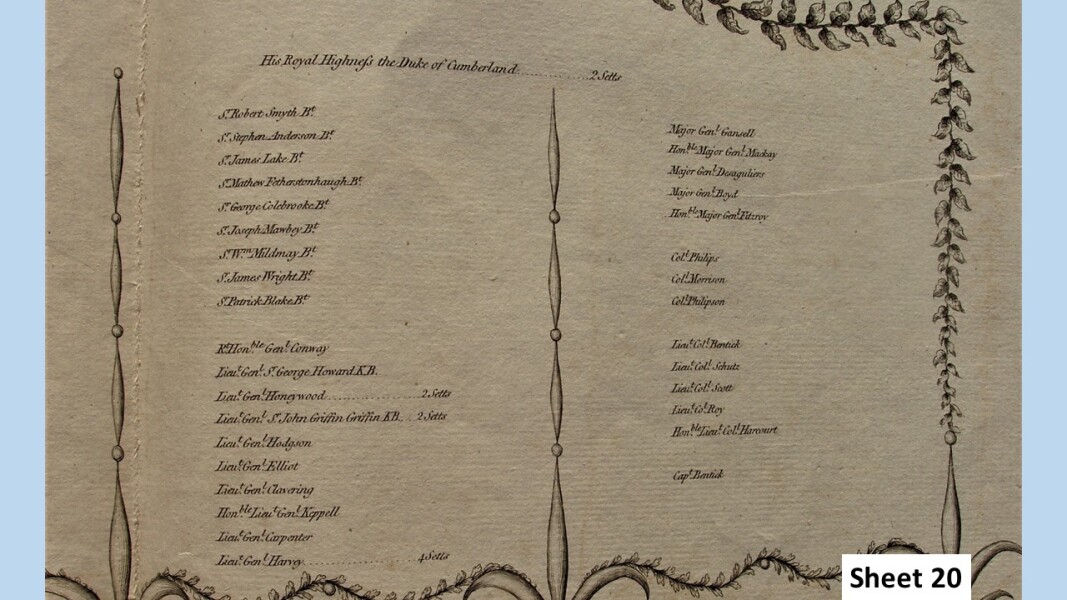 His Royal Highneſs the Duke of Cumberland..................2 Setts
Sr. Robert Smyth Bt.
Sr. Stephen Anderson Bt.
Sr. James Lake Bt.
Sr. Mathew Fetherstonhaugh Bt.
Sr. George Colebrooke Bt.
Sr. Joseph Mawbey Bt.
Sr. Wm. Mildmay Bt.
Sr. James Wright Bt.
Sr. Patrick Blake Bt.
Rt. Honble. Genl. Conway
Lieut. Genl. Sr. George Howard K.B.
Lieut. Genl. Honeywood......................2 Setts
Lieut. Genl. Sr. John Griffin Griffin KB....2 Setts
Lieut. Genl. Hodgson
Lieut. Genl. Elliot
Lieut. Genl. Clavering
Honble. Lieut. Genl. Keppell
Lieut. Genl. Carpenter
Lieut. Genl. Harvey..........................4 Setts
Major Genl. Gansell
Honble. Major Genl. Mackay
Major Genl. Desaguliers
Major Genl. Boyd
Honble. Major Genl. Fitzroy
Coll. Philips
Coll. Morrison
Coll. Philipson
Lieut. Coll. Bentick
Lieut. Coll. Schutz
Lieut. Coll. Scott
Lieut. Col. Roy
Honble. Lieut. Coll. Harcourt
Capt. Bentick
Sheet 20